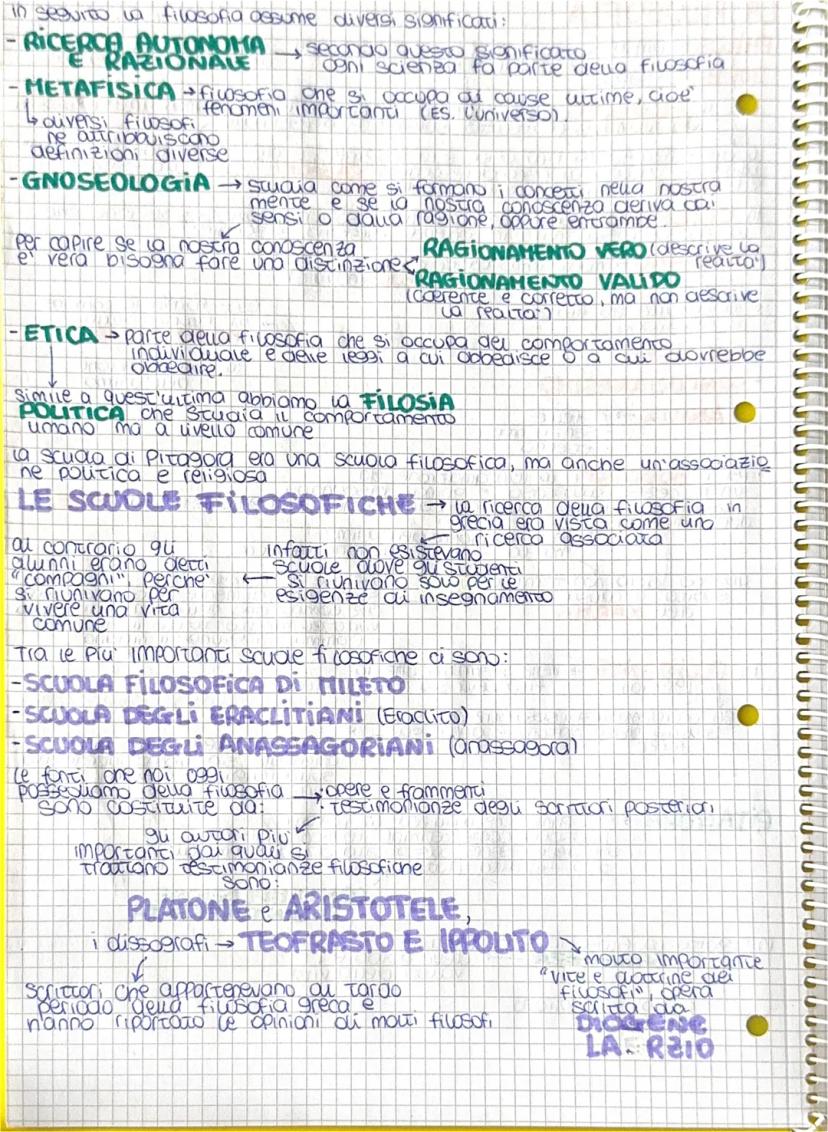 in seguito la filosofia assume diversi significati:
- RICERCA AUTONOMA E RAZIONALE → secondo questo significato
ogni scienza fa parte della filosofia
- METAFISICA → filosofia che si occupa di cause ultime, cioè
fenomeni importanti (ES. l'universo).
↳ diversi filosofi
ne attribuiscono
definizioni diverse
- GNOSEOLOGIA → studia come si formano i concetti nella nostra
mente e se la nostra conoscenza deriva dai
sensi o dalla ragione, oppure entrambe.
per capire se la nostra conoscenza
e' vera bisogna fare una distinzione <
RAGIONAMENTO VERO (descrive la
realta')
RAGIONAMENTO VALIDO
(coerente e corretto, ma non descrive
la realta')
- ETICA → parte della filosofia che si occupa del comportamento
individuale e delle leggi a cui obbedisce o a cui dovrebbe
obbedire.
simile a quest'ultima abbiamo la FILOSIA
POLITICA che studia il comportamento
umano ma a livello comune
la scuola di Pitagora era una scuola filosofica, ma anche un'associazio
ne politica e religiosa
LE SCUOLE FILOSOFICHE → la ricerca della filosofia in
grecia era vista come una
ricerca associata
infatti non esistevano
scuole dove gli studenti
si riunivano solo per le
esigenze di insegnamento
al contrario gli
alunni erano detti
"compagni", perche'
si riunivano per
vivere una vita
comune
Tra le piu' importanti scuole filosofiche ci sono:
- SCUOLA FILOSOFICA DI MILETO
- SCUOLA DEGLI ERACLITIANI (Eraclito)
- SCUOLA DEGLI ANASSAGORIANI (anassagora)
le fonti che noi oggi
possediamo della filosofia
sono costituite da:
→ · opere e frammenti
· testimonianze degli scrittori posteriori
gli autori piu'
importanti dai quali si
trattano testimonianze filosofiche
sono:
PLATONE e ARISTOTELE,
i dissografi → TEOFRASTO E IPPOLITO
scrittori che appartenevano al tardo
periodo della filosofia greca e
hanno riportato le opinioni di molti filosofi
molto importante
"vite e dottrine dei
filosofi", opera
scritta da
DIOGENE
LA RZIO